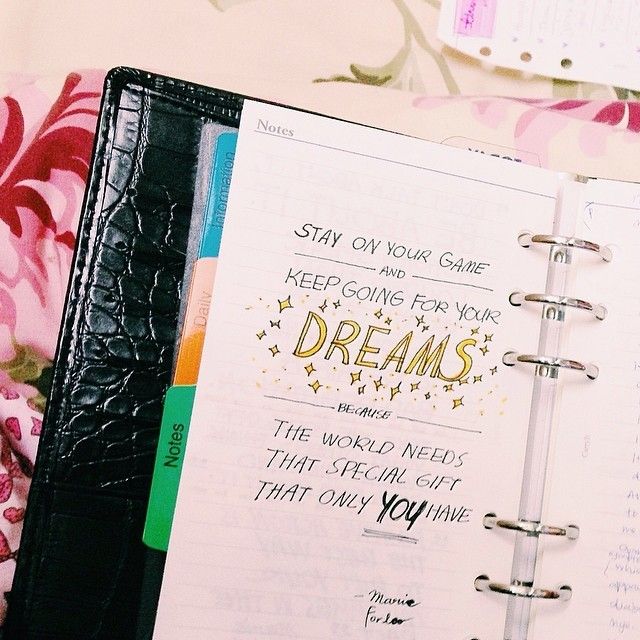 Notes
STAY ON YOUR GAME
AND
KEEP GOING FOR YOUR
DREAMS
BECAUSE
THE WORLD NEEDS
THAT SPECIAL GIFT
THAT ONLY YOU HAVE
- Marie
Forleo
Information
Daily
Notes